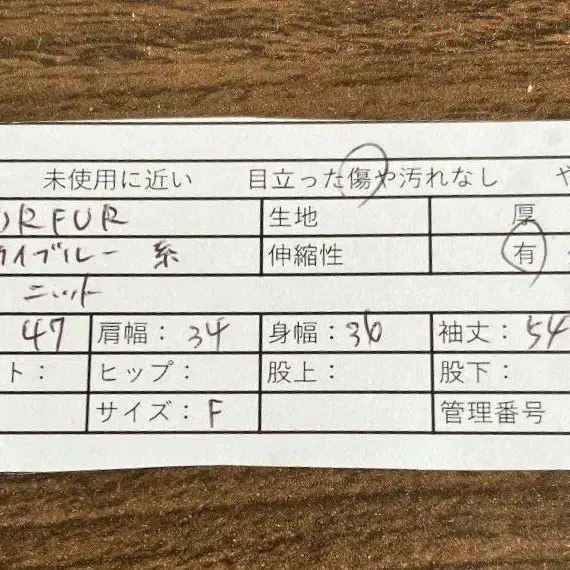 未使用に近い 目立った傷や汚れなし や
URFUR 生地 厚
ライブルー系 伸縮性 有
ニット
47 肩幅: 34 身幅: 36 袖丈: 54
ト: ヒップ: 股上: 股下:
サイズ: F 管理番号